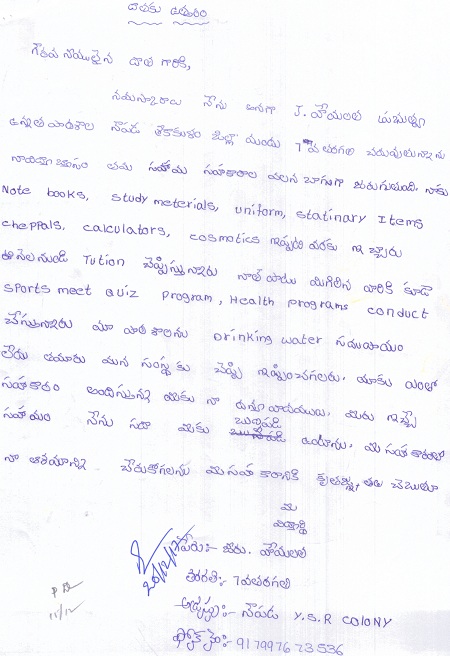 దాతకు ఉత్తరం
గౌరవనీయులైన దాత గారికి,
నమస్కారాలు నేను అనగా J. హేమలత
ఉన్నత పాఠశాల నౌపడ శ్రీకాకుళం జిల్లా నుండి 7వ తరగతి చదువుతున్నాను
నా విద్యాభ్యాసం తమ సహాయ సహకారాల వలన బాగుగా జరుగుతుంది. నాకు
Note books, study meterials, uniform, statinary Items
cheppals, calculators, cosmotics ఇప్పటి వరకు ఇచ్చారు
ఈ నెల నుండి Tution చెప్పిస్తున్నారు నాతో పాటు మిగిలిన వారికి కూడా
sports meet Quiz program, Health programs conduct
చేస్తున్నారు మా పాఠశాలను Drinking water సదుపాయం
లేదు తమారు మన సంస్థ కు చెప్పి ఇప్పించగలరు. మాకు ఎంతో
సహకారం అందిస్తున్న మీకు నా ధన్యవాదములు. మీరు ఇచ్చే
సహాయం నేను సదా మీకు బుణపడి ఉంటాను. మీ సహకారంతో
నా ఆశయాన్ని చేరుకోగలను మీ సహకారానికి కృతజ్ఞతలు చెబుతూ
మీ
విద్యార్థి
పేరు:- జరు. హేమలత
తరగతి:- 7వతరగతి
అడ్రస్సు:- నౌపడ Y.S.R COLONY
ఫోన్ నెం:- 9179976 73536
20/12/17
11/12